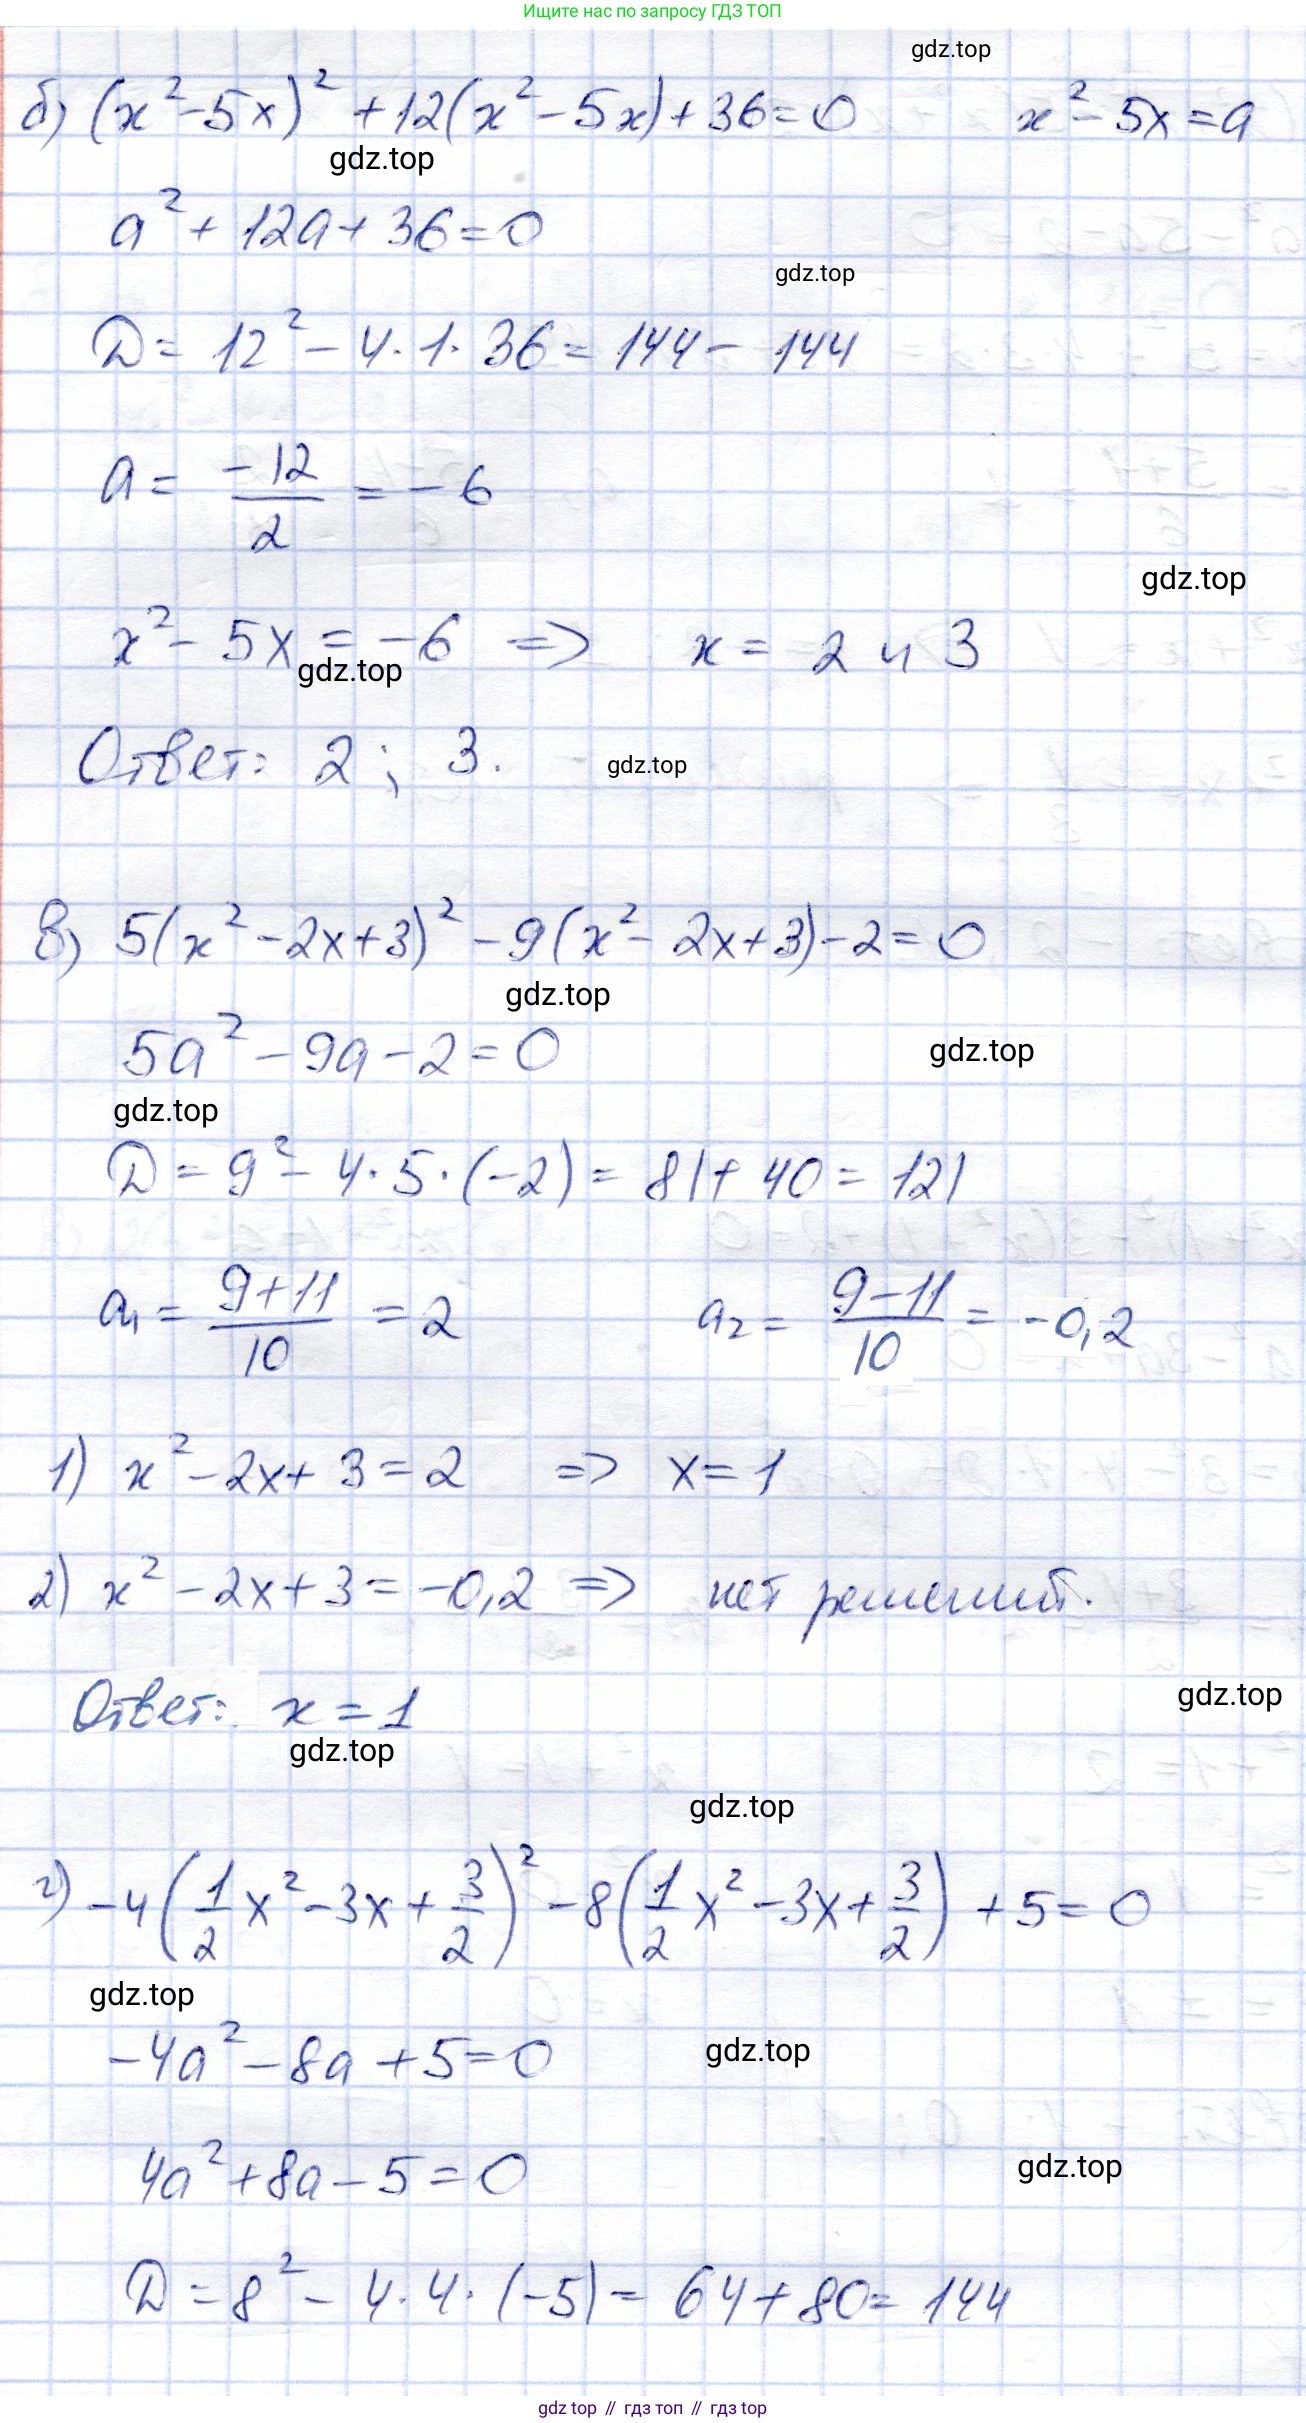 Ищите нас по запросу ГДЗ ТОП
gdz.top
б) (x² - 5x)² + 12(x² - 5x) + 36 = 0 x² - 5x = a
gdz.top
a² + 12a + 36 = 0
gdz.top
D = 12² - 4 · 1 · 36 = 144 - 144
a = -12/2 = -6
gdz.top
x² - 5x = -6 => x = 2 и 3
gdz.top
Ответ: 2 ; 3.
gdz.top
в) 5(x² - 2x + 3)² - 9(x² - 2x + 3) - 2 = 0
gdz.top
5a² - 9a - 2 = 0
gdz.top
gdz.top
D = 9² - 4 · 5 · (-2) = 81 + 40 = 121
a₁ = (9+11)/10 = 2 a₂ = (9-11)/10 = -0,2
1) x² - 2x + 3 = 2 => x = 1
2) x² - 2x + 3 = -0,2 => нет решений.
gdz.top
Ответ: x = 1
gdz.top
gdz.top
г) -4(1/2 x² - 3x + 3/2)² - 8(1/2 x² - 3x + 3/2) + 5 = 0
gdz.top
-4a² - 8a + 5 = 0
gdz.top
4a² + 8a - 5 = 0
gdz.top
D = 8² - 4 · 4 · (-5) = 64 + 80 = 144
gdz top // гдз топ // gdz top